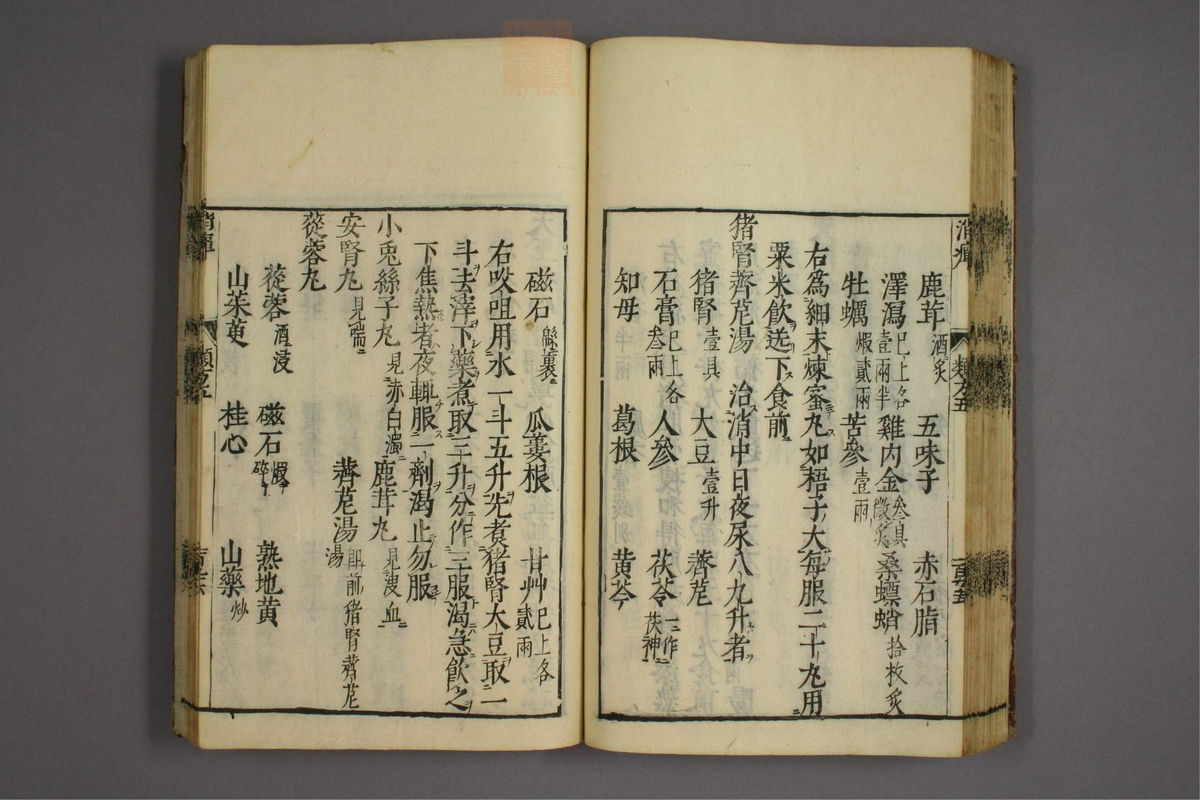 鹿茸酒炙　五味子　赤石脂
澤瀉已上各壹兩半　雞内金叁具微炙　桑螵蛸拾枚炙
牡蠣煆貳兩　苦參壹兩
右爲細末煉蜜丸如梧子大每服二十丸用
粟米飲送下食前
猪腎薺苨湯　治消中日夜尿八九升者
猪腎壹具　大豆壹升　薺苨
石膏已上各叁兩　人參　茯苓一作茯神
知母　葛根　黄芩
磁石綿裹　瓜蔞根　甘艸已上各貳兩
右㕮咀用水一斗五升先煮猪腎大豆取一
斗去滓下藥煮取三升分作三服渴急飲之
下焦熱者夜輒服一劑渴止勿服
小兎絲子丸見赤白濁　鹿茸丸見溲血
安腎丸見喘　薺苨湯即前猪腎薺苨湯
蓯蓉丸
蓯蓉酒浸　磁石碎　熟地黄
山茱萸　桂心　山藥炒